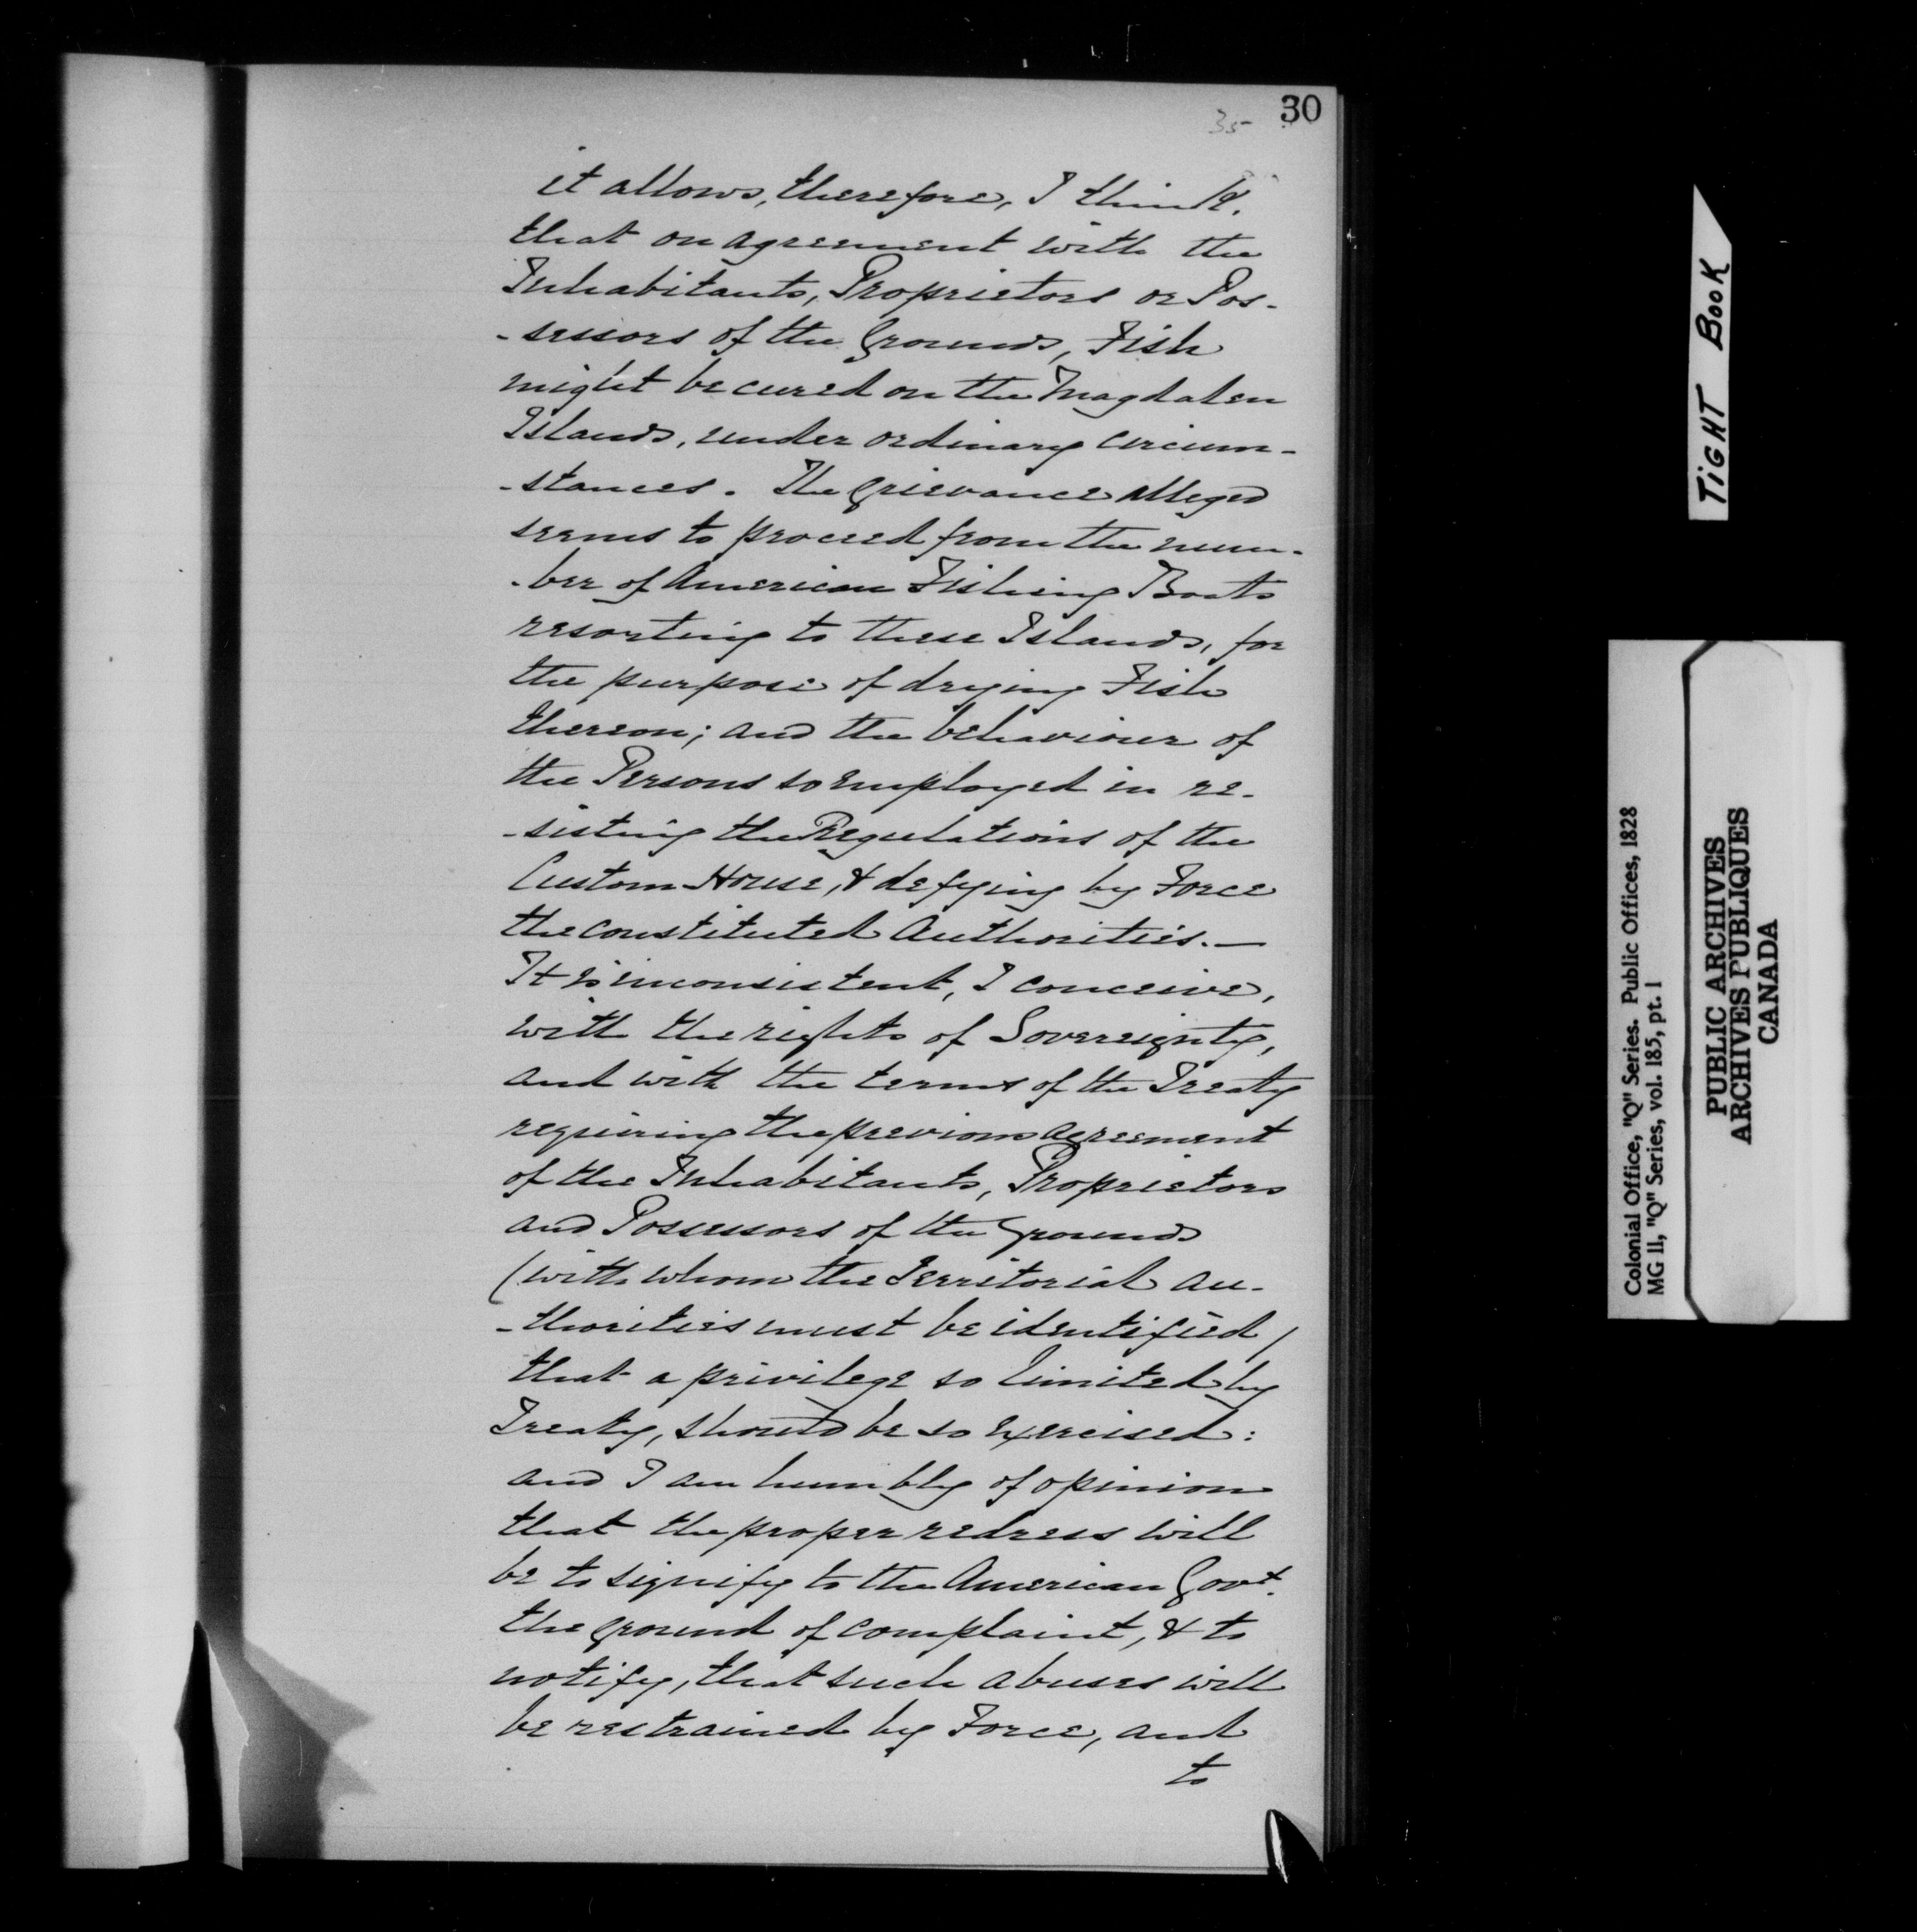 30
35
it allows, therefore, I think,
that on agreement with the
Inhabitants, Proprietors or Pos-
-sessors of the Grounds, Fish
might be cured on the Magdalen
Islands, under ordinary circum-
-stances. The grievance alleged
seems to proceed from the num-
-ber of American Fishing Boats
resorting to these Islands, for
the purpose of drying Fish
thereon; and the behaviour of
the Persons so employed in re-
-sisting the Regulations of the
Custom House, & defying by Force
the constituted Authorities.—
It is inconsistent, I conceive,
with the rights of Sovereignty,
and with the terms of the Treaty
requiring the previous agreement
of the Inhabitants, Proprietors
and Possessors of the Grounds
(with whom the Territorial au-
-thorities must be identified)
that a privilege so limited by
Treaty, should be so exercised:
and I am humbly of opinion
that the proper redress will
be to signify to the American Govt.
the ground of complaint, & to
notify, that such abuses will
be restrained by Force, and
to
TIGHT BOOK
Colonial Office, "Q" Series. Public Offices, 1828
MG 11, "Q" Series, vol. 185, pt. 1
PUBLIC ARCHIVES
ARCHIVES PUBLIQUES
CANADA